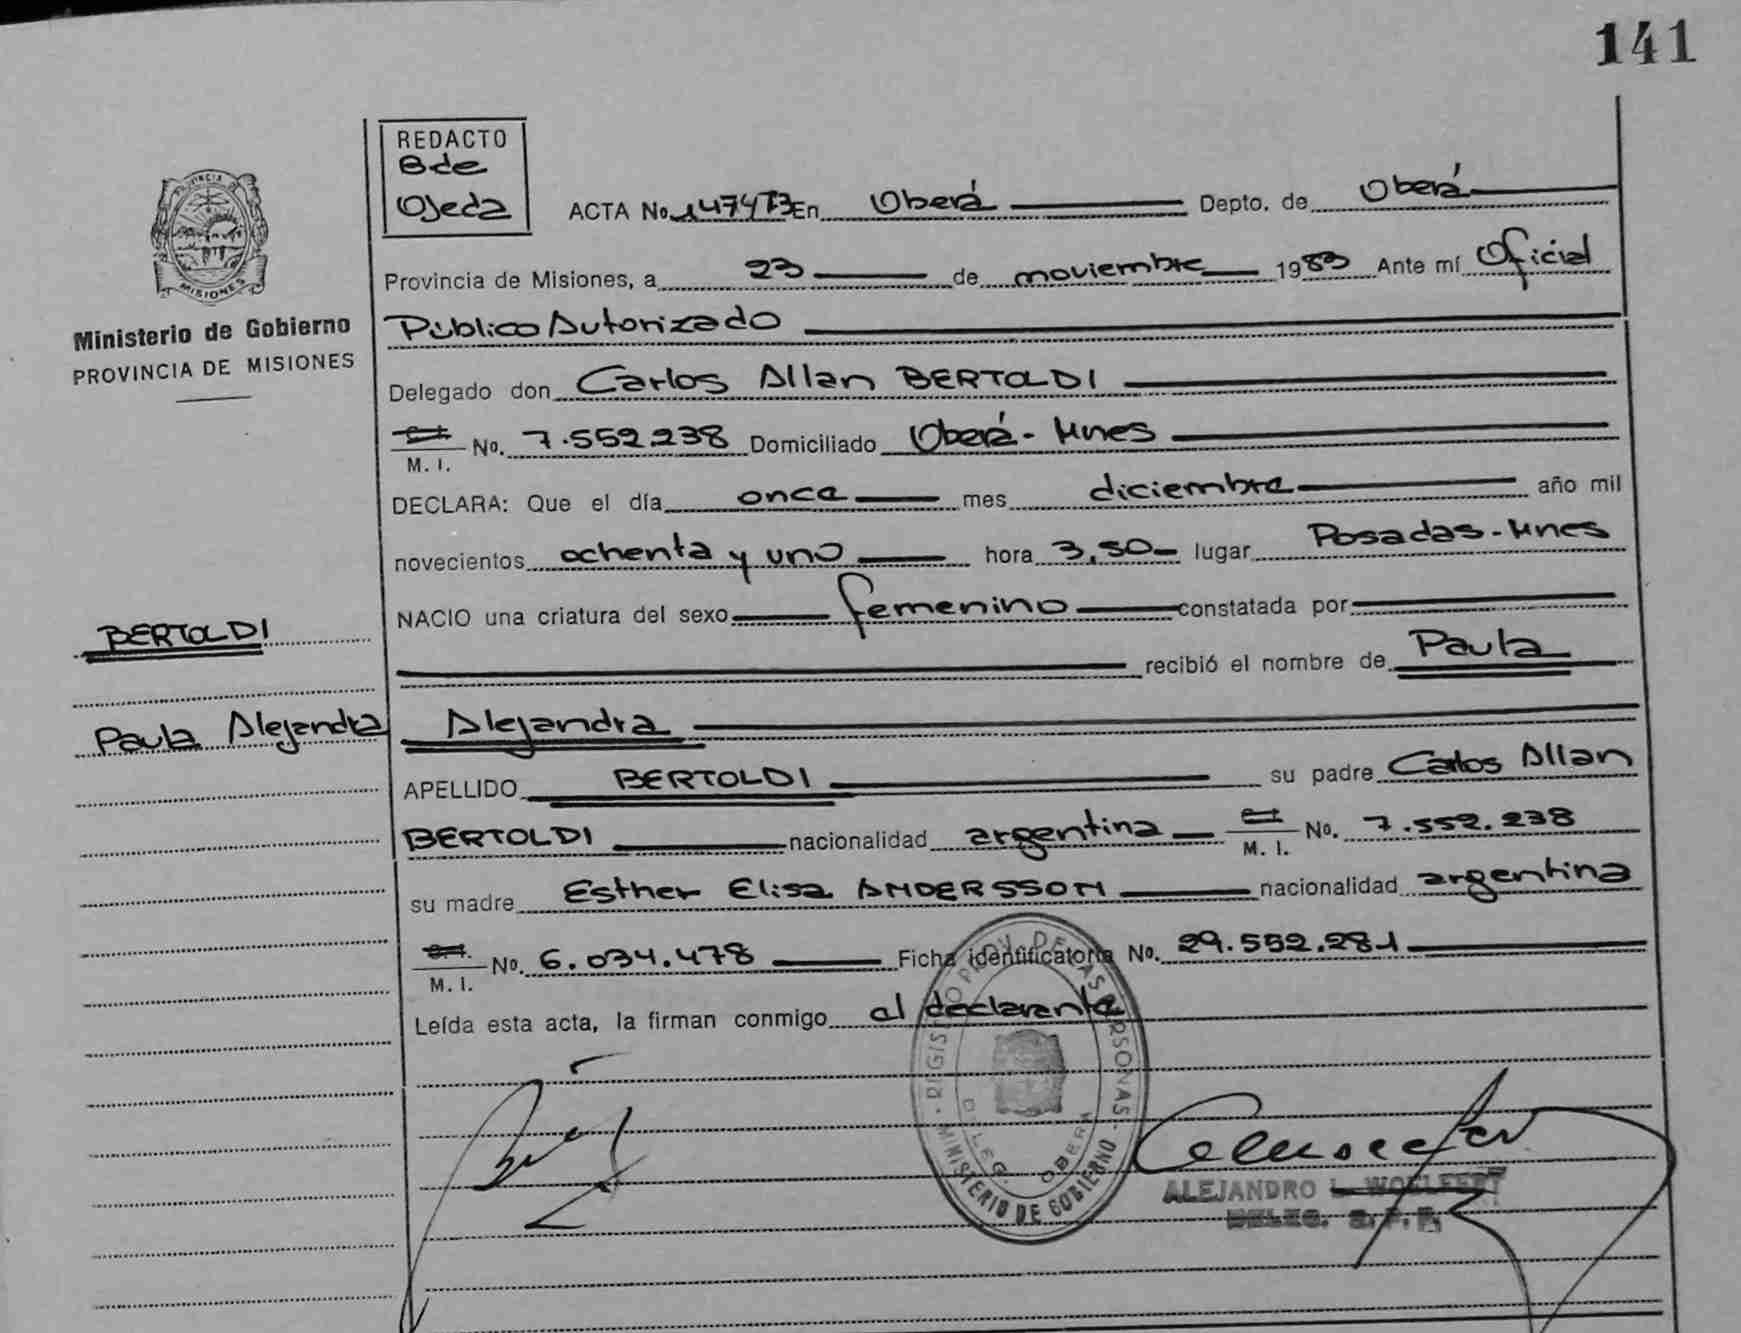 141
REDACTO
B de
Ojeda
ACTA No. 147473 En Oberá Depto. de Oberá
MISIONES
Ministerio de Gobierno
PROVINCIA DE MISIONES
Provincia de Misiones, a 23 de noviembre 1983 Ante mí Oficial
Público Autorizado
Delegado don Carlos Allan BERTOLDI
M. I. No. 7.552.238 Domiciliado Oberá - Mnes
DECLARA: Que el día once mes diciembre año mil
novecientos ochenta y uno hora 3,50 lugar Posadas - Mnes
NACIO una criatura del sexo femenino constatada por
BERTOLDI
recibió el nombre de Paula
Paula Alejandra
Alejandra
APELLIDO BERTOLDI su padre Carlos Allan
BERTOLDI nacionalidad argentina M. I. No. 7.552.238
su madre Esther Elisa ANDERSSON nacionalidad argentina
M. I. No. 6.034.478 Ficha identificatoria No. 29.552.281
Leída esta acta, la firman conmigo el declarante
MINISTERIO DE GOBIERNO
DELEG. OBERA
ALEJANDRO L. WOELFERT
DELEG. R. P. P.